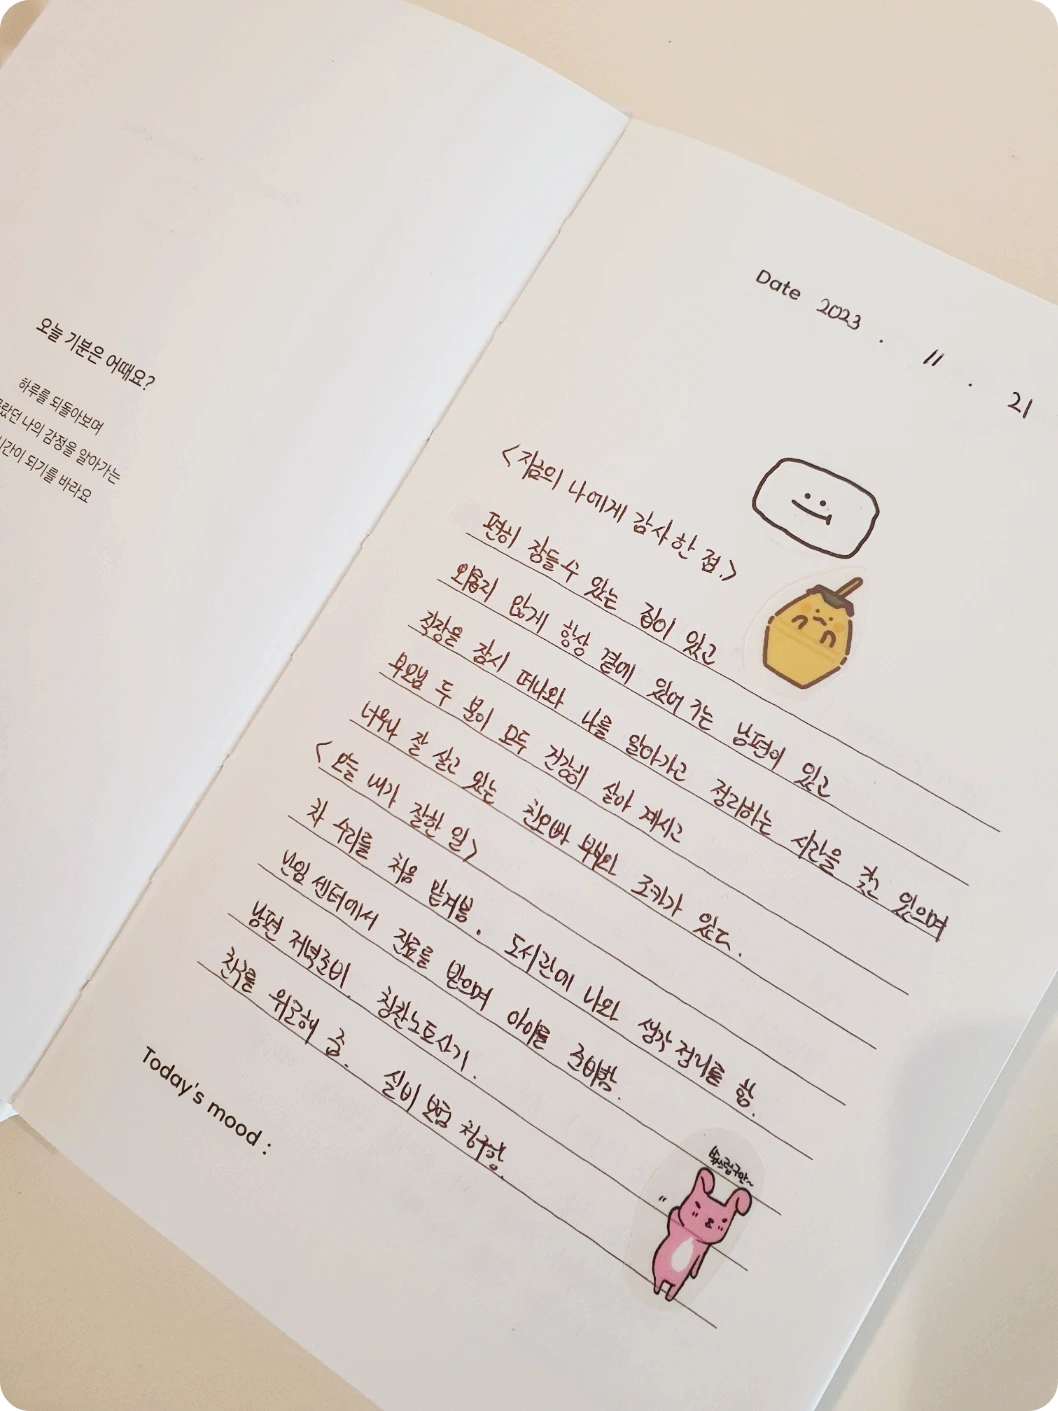 오늘 기분은 어때요?
하루를 되돌아보며
몰랐던 나의 감정을 알아가는
시간이 되기를 바라요
Date 2023 . 11 . 21
<지금의 나에게 감사한 점.>
편히 잠들수 있는 집이 있고
외롭지 않게 항상 곁에 있어 주는 남편이 있고
직장을 잠시 떠나와 나를 알아가고 정리하는 시간을 갖고 있으며
부모님 두 분이 모두 건강히 살아 계시고
너무나 잘 살고 있는 친오빠 부부와 조카가 있다.
<오늘 내가 잘한 일>
차 수리를 처음 맡겨봄. 도서관에 나와 생각 정리를 함.
난임 센터에서 진료를 받으며 아이를 준비함.
남편 저녁준비. 칭찬노트쓰기.
친구를 위로해 줌. 실비 보험 청구함.
Today's mood :
쑥스럽구만~